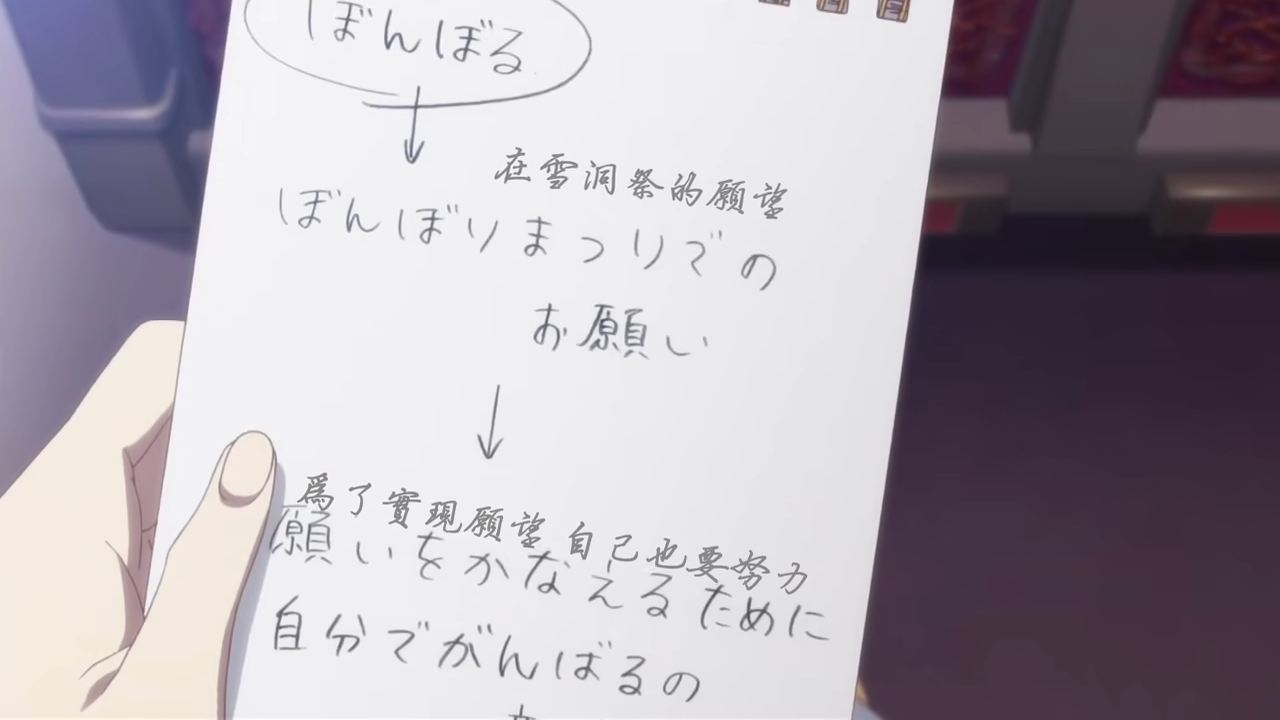 ぼんぼる
在雪洞祭的願望
ぼんぼりまつりでの
お願い
爲了實現願望 自己也要努力
願いをかなえるために
自分でがんばるの